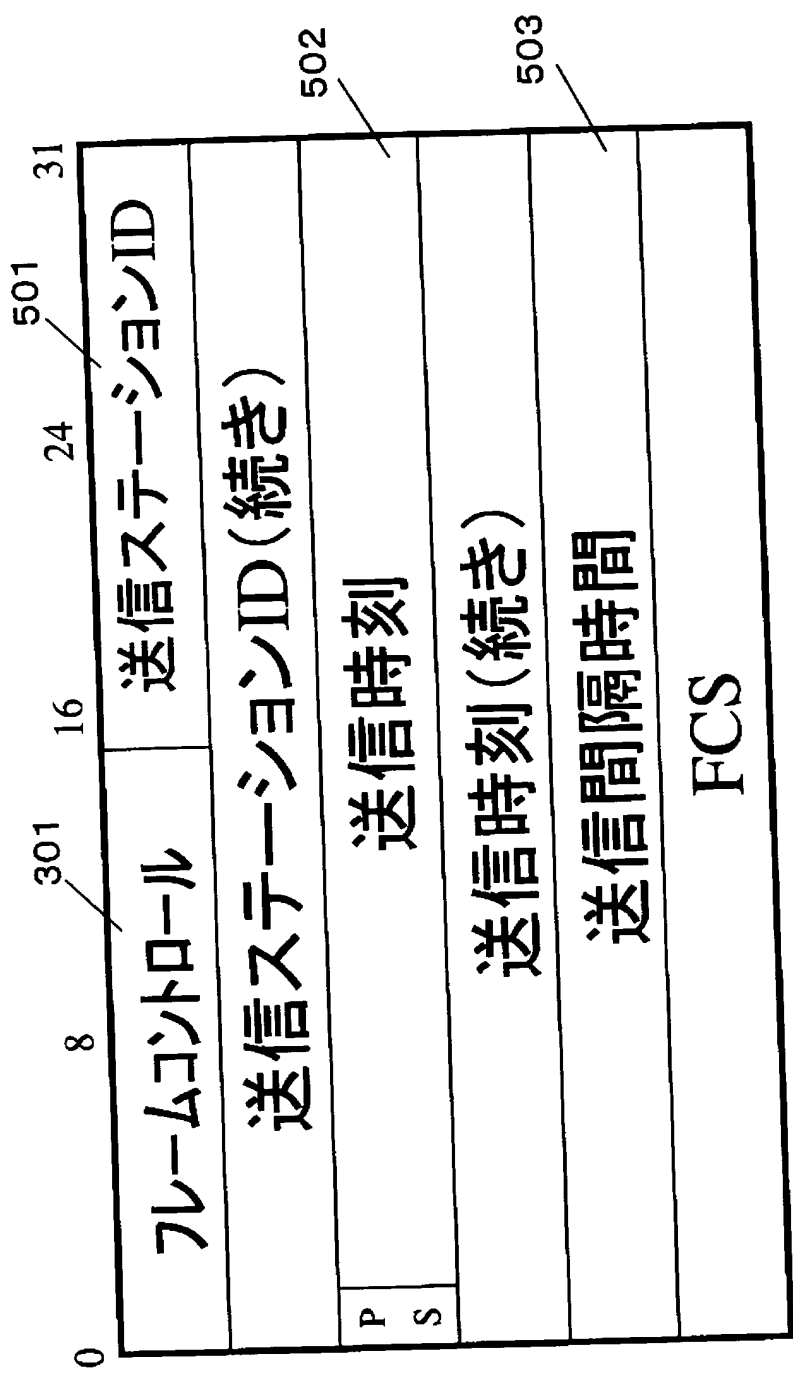 0 8 16 24 31
301 501
フレームコントロール 送信ステーションID
送信ステーションID(続き)
P S 送信時刻 502
送信時刻(続き)
送信間隔時間 503
FCS